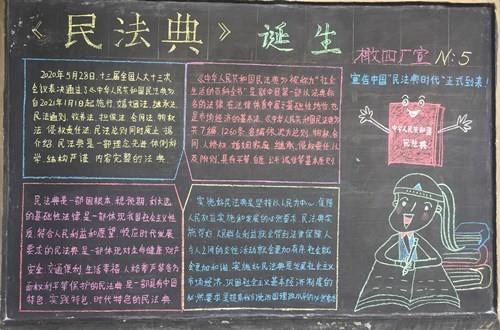 《民法典》诞生
橄四厂宣 N:5
宣告中国"民法典时代"正式到来!
2020年5月28日,十三届全国人大十三次
会议表决通过了《中华人民共和国民法典》自
2021年1月1日起施行 婚姻法、继承法、
民法通则、收养法、担保法、合同法、物权
法、侵权责任法、民法总则同时废止 据
介绍,民法典是一部理念先进 体例科
学、结构严谨 内容完整的法典
《中华人民共和国民法典》被称为"社会
生活的百科全书"是新中国第一部以法典命
名的法律 在法律体系中居于基础性地位 也
是市场经济的基本法 《中华人民共和国民法典》
共7编 1260条 各编依次为总则、物权 合
同 人格权 婚姻家庭 继承、侵权责任 以
及附则
民法典是一部固根本、稳预期、利长远
的基础性法律 是一部体现我国社会主义性
质、符合人民利益和愿望、顺应时代发展
要求的民法典 是一部体现对生命健康 财产
安全、交易便利、生活幸福、人格尊严等各方
面权利平等保护的民法典 是一部具有中国
特色、实践特色、时代特色的民法典
实施好民法典是坚持以人民为中心、保障
人民权益实现和发展的必然要求 民法典实
施
会更加和谐 实施好民法典是发展社会主义
市场经济、巩固社会主义基本经济制度的
必然要求
中华人民共和国
民法典